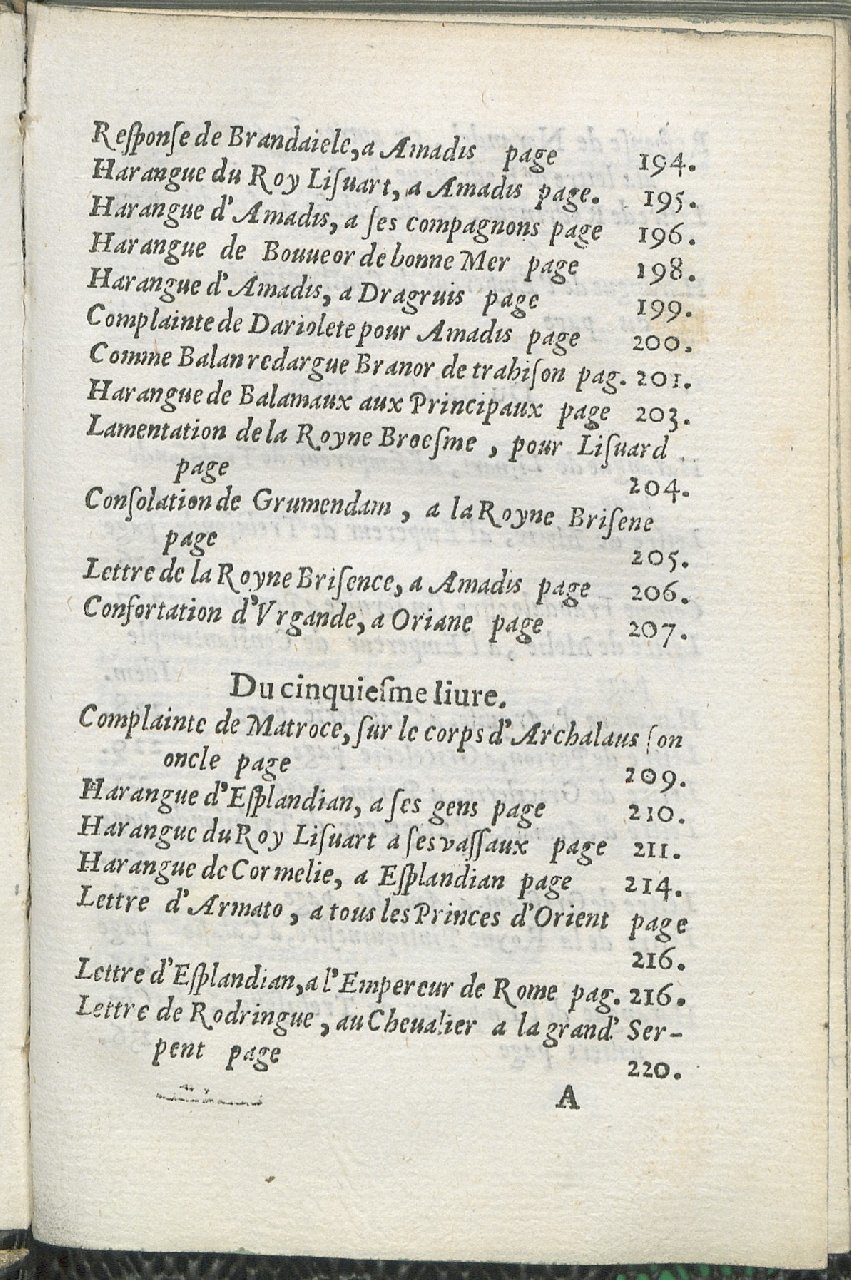 Reſponſe de Brandaiele, a Amadis page 194.
Harangue du Roy Liſuart, a Amadis page. 195.
Harangue d'Amadis, a ſes compagnons page 196.
Harangue de Bouueor de bonne Mer page 198.
Harangue d'Amadis, a Dragruis page 199.
Complainte de Dariolete pour Amadis page 200.
Comme Balan redargue Branor de trahiſon pag. 201.
Harangue de Balamaux aux Principaux page 203.
Lamentation de la Royne Broeſme, pour Liſuard
page 204.
Conſolation de Grumendam, a la Royne Briſene
page 205.
Lettre de la Royne Briſence, a Amadis page 206.
Confortation d'Vrgande, a Oriane page 207.
Du cinquieſme liure.
Complainte de Matroce, ſur le corps d'Archalaus ſon
oncle page 209.
Harangue d'Eſplandian, a ſes gens page 210.
Harangue du Roy Liſuart a ses vaſſaux page 211.
Harangue de Cormelie, a Eſplandian page 214.
Lettre d'Armato, a tous les Princes d'Orient page
216.
Lettre d'Eſplandian, a l'Empereur de Rome pag. 216.
Lettre de Rodringue, au Cheualier a la grand' Ser-
pent page 220.
A